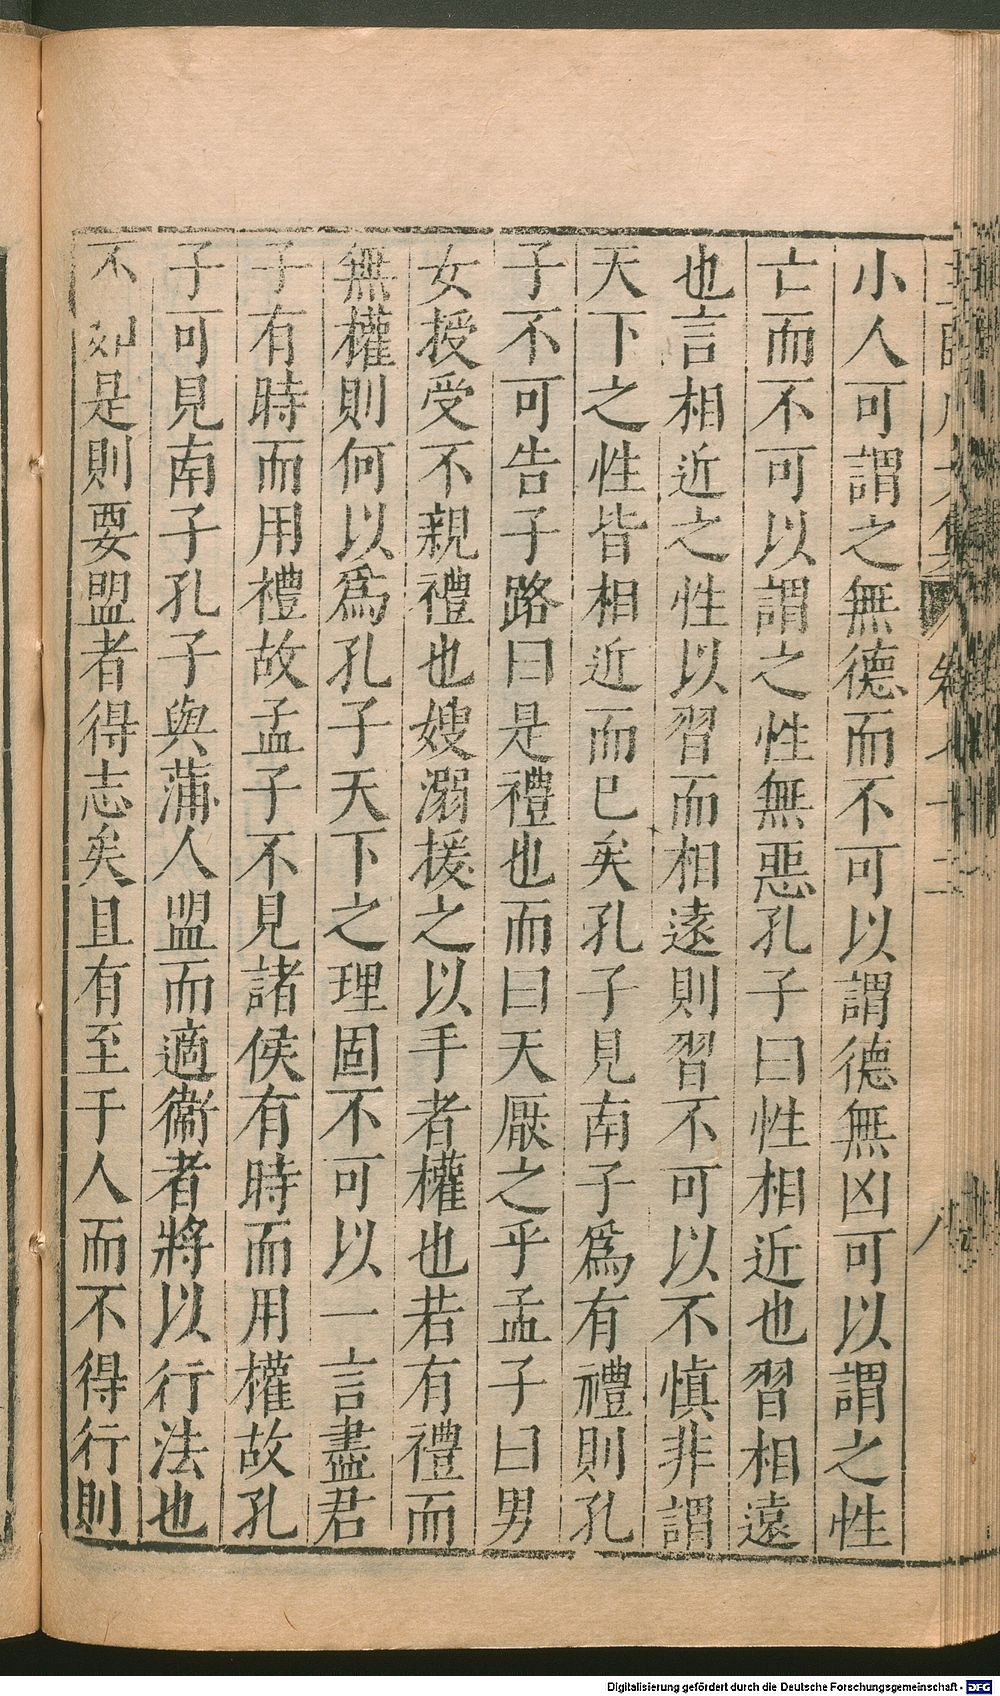 小人可謂之無德而不可以謂德無凶可以謂之性
亡而不可以謂之性無惡孔子曰性相近也習相遠
也言相近之性以習而相遠則習不可以不慎非謂
天下之性皆相近而已矣孔子見南子為有禮則孔
子不可告子路曰是禮也而曰天厭之乎孟子曰男
女授受不親禮也嫂溺援之以手者權也若有禮而
無權則何以為孔子天下之理固不可以一言盡君
子有時而用禮故孟子不見諸侯有時而用權故孔
子可見南子孔子與蒲人盟而適衞者將以行法也
不如是則要盟者得志矣且有至于人而不得行則
Digitalisierung gefördert durch die Deutsche Forschungsgemeinschaft - DFG